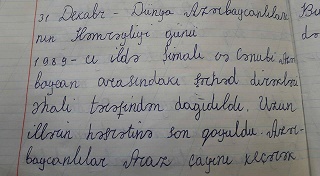 31 Dekabr - Dünya Azərbaycanlıları
nın Həmrəyliyi günü
1989-cu ildə Şimali və Cənubi Azər
baycan arasındakı sərhəd dirəkləri
əhali tərəfindən dağıdıldı. Uzun
illərin həsrətinə son qoyuldu. Azər-
baycanlılar Araz çayını keçərək
Bu